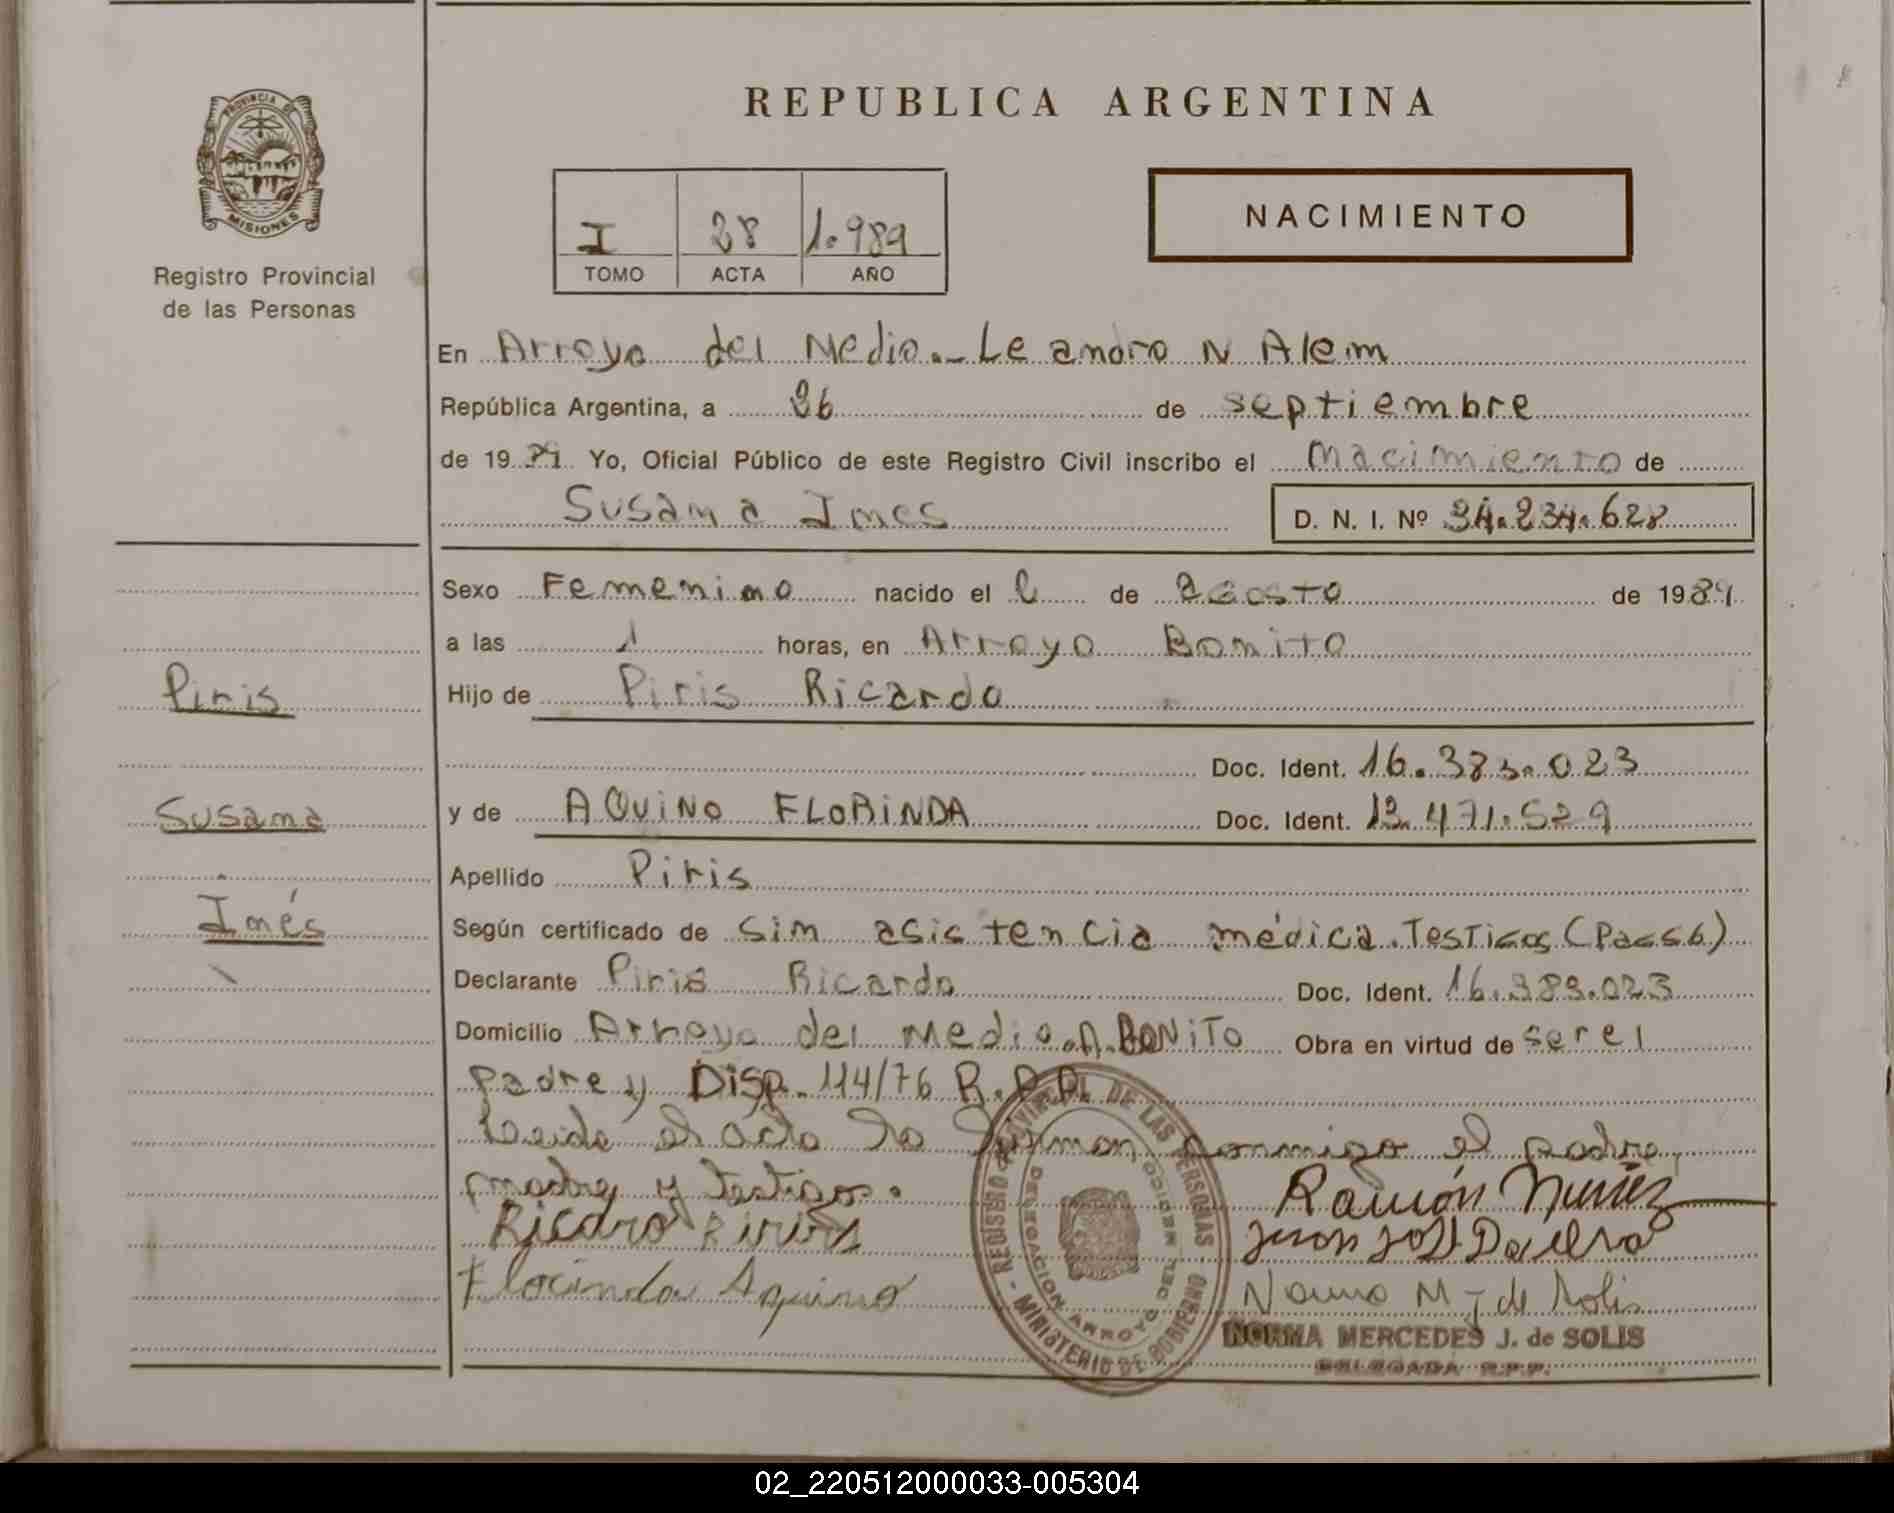 REPUBLICA ARGENTINA
PROVINCIA DE
MISIONES
Registro Provincial
de las Personas
NACIMIENTO
I 28 1.989
TOMO ACTA AÑO
En Arroyo del Medio.- Leandro N Alem
República Argentina, a 26 de septiembre
de 19 Yo, Oficial Público de este Registro Civil inscribo el nacimiento de
Susana Ines D. N. I. Nº 34.234.628
Sexo Femenino nacido el de agosto de 1989
a las 1 horas, en Arroyo Bonito
Piris
Hijo de Piris Ricardo
Doc. Ident. 16.383.023
Susana
y de AQUiNo FLORiNDA Doc. Ident. 13.471.529
Apellido Piris
Inés
Según certificado de sin asistencia médica. Testigos
Declarante Piris Ricardo Doc. Ident. 16.383.023
Domicilio Arroyo del Medio.A.BONiTo Obra en virtud de ser el
padre y Disp. 114/76 R.P.P.
Leida el acta la firman conmigo el padre,
madre y testigos.
Ramón Nuñez
Florinda Aquino
Norma M J de Solis
REGISTRO PROVINCIAL DE LAS PERSONAS - MINISTERIO DE GOBIERNO
DELEGACION ARROYO DEL MEDIO
NORMA MERCEDES J. de SOLIS
DELEGADA R.P.P.
02_220512000033-005304